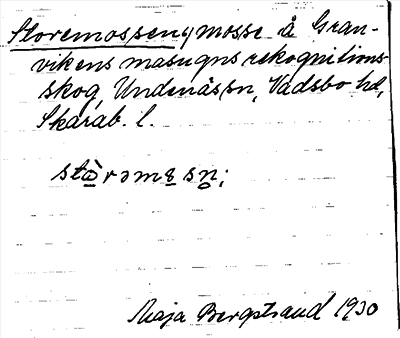 Storemossen, mosse å Gran-
vikens masugns rekognitions-
skog, Undenäs sn, Vadsbo hd,
Skarab. l.
stòrəmɵsn;
Maja Bergstrand 1930